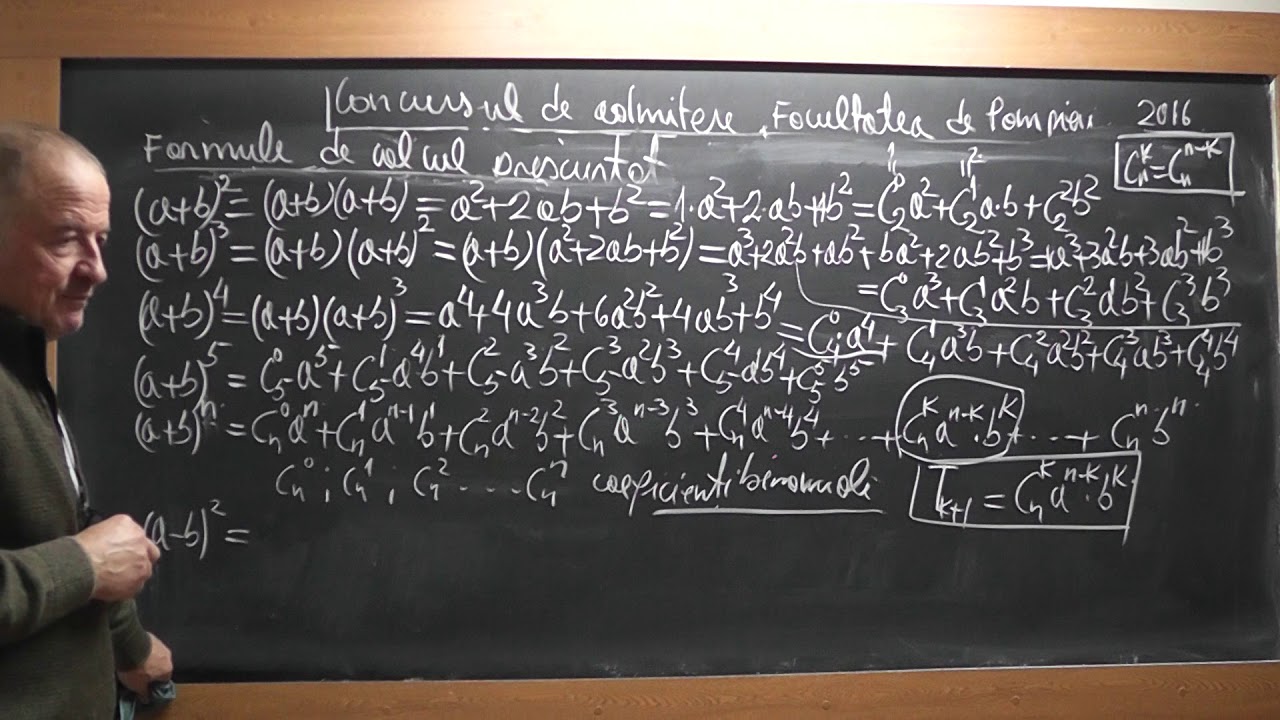 Concursul de admitere, Facultatea de Pompieri 2016
Formule de calcul prescurtat
Cₙᵏ=Cₙⁿ⁻ᵏ
(a+b)²=(a+b)(a+b)=a²+2ab+b²=1·a²+2·ab+1b²=C₂⁰a²+C₂¹a·b+C₂²b²
(a+b)³=(a+b)(a+b)²=(a+b)(a²+2ab+b²)=a³+2a²b+ab²+ba²+2ab²+b³=a³+3a²b+3ab²+b³
=C₃⁰a³+C₃¹a²b+C₃²ab²+C₃³b³
(a+b)⁴=(a+b)(a+b)³=a⁴+4a³b+6a²b²+4ab³+b⁴=C₄⁰a⁴+C₄¹a³b+C₄²a²b²+C₄³ab³+C₄⁴b⁴
(a+b)⁵=C₅⁰a⁵+C₅¹a⁴b¹+C₅²a³b²+C₅³a²b³+C₅⁴ab⁴+C₅⁵b⁵
(a+b)ⁿ=Cₙ⁰aⁿ+Cₙ¹aⁿ⁻¹b¹+Cₙ²aⁿ⁻²b²+Cₙ³aⁿ⁻³b³+Cₙ⁴aⁿ⁻⁴b⁴+...+Cₙᵏaⁿ⁻ᵏ·bᵏ+...+Cₙⁿbⁿ
Cₙ⁰; Cₙ¹; Cₙ²....Cₙⁿ coeficienti binomiali
Tₖ₊₁=Cₙᵏaⁿ⁻ᵏ·bᵏ
(a-b)²=